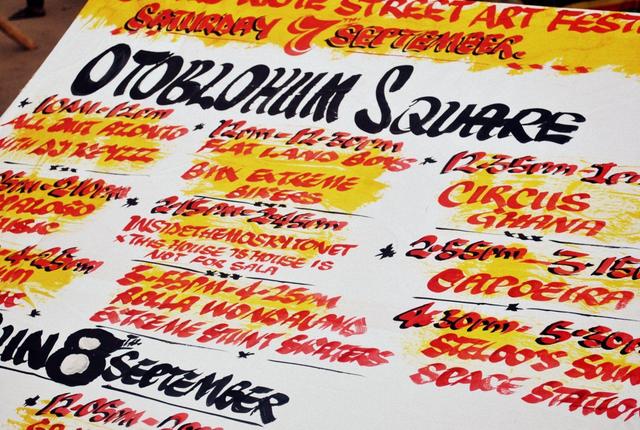 STREET ART FEST
SATURDAY 7TH SEPTEMBER.
OTOBLOHUM SQUARE
10AM - 12PM
ALL OUT AZONTO
WITH DJ KEYZZZ
12PM - 12-30PM
FLAT LAND BOYS
BMX EXTREME
BIKERS
2-15PM - 2-45PM
INSIDETHEMOSKYTONET
x THIS HOUSE IS HOUSE IS
NOT FOR SALA
3-55PM - 4-25PM
ROLLA WONDALAND
EXTREME STUNT SKATERS
12-35PM - 1
CIRCUS
GHANA
2-55PM - 3-15
CAPOEIRA
4-30PM - 5-30PM
STELOO'S SOUN
SPACE STATION
SUN 8TH SEPTEMBER
12-05PM